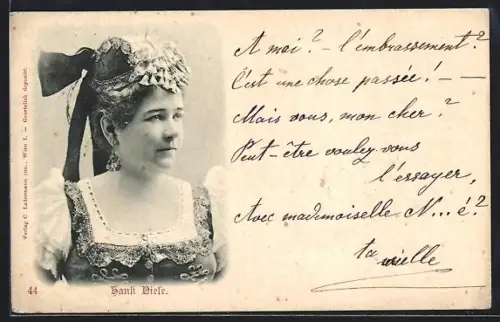 A moi? – l'embrassement?
C'est une chose passée! – —
Mais vous, mon cher?
Peut-être voulez-vous
l'essayer,
Avec mademoiselle N...é?
ta vieille
Verlag C. Ledermann jun., Wien I. – Gesetzlich deponirt.
44
Hansi Niese.